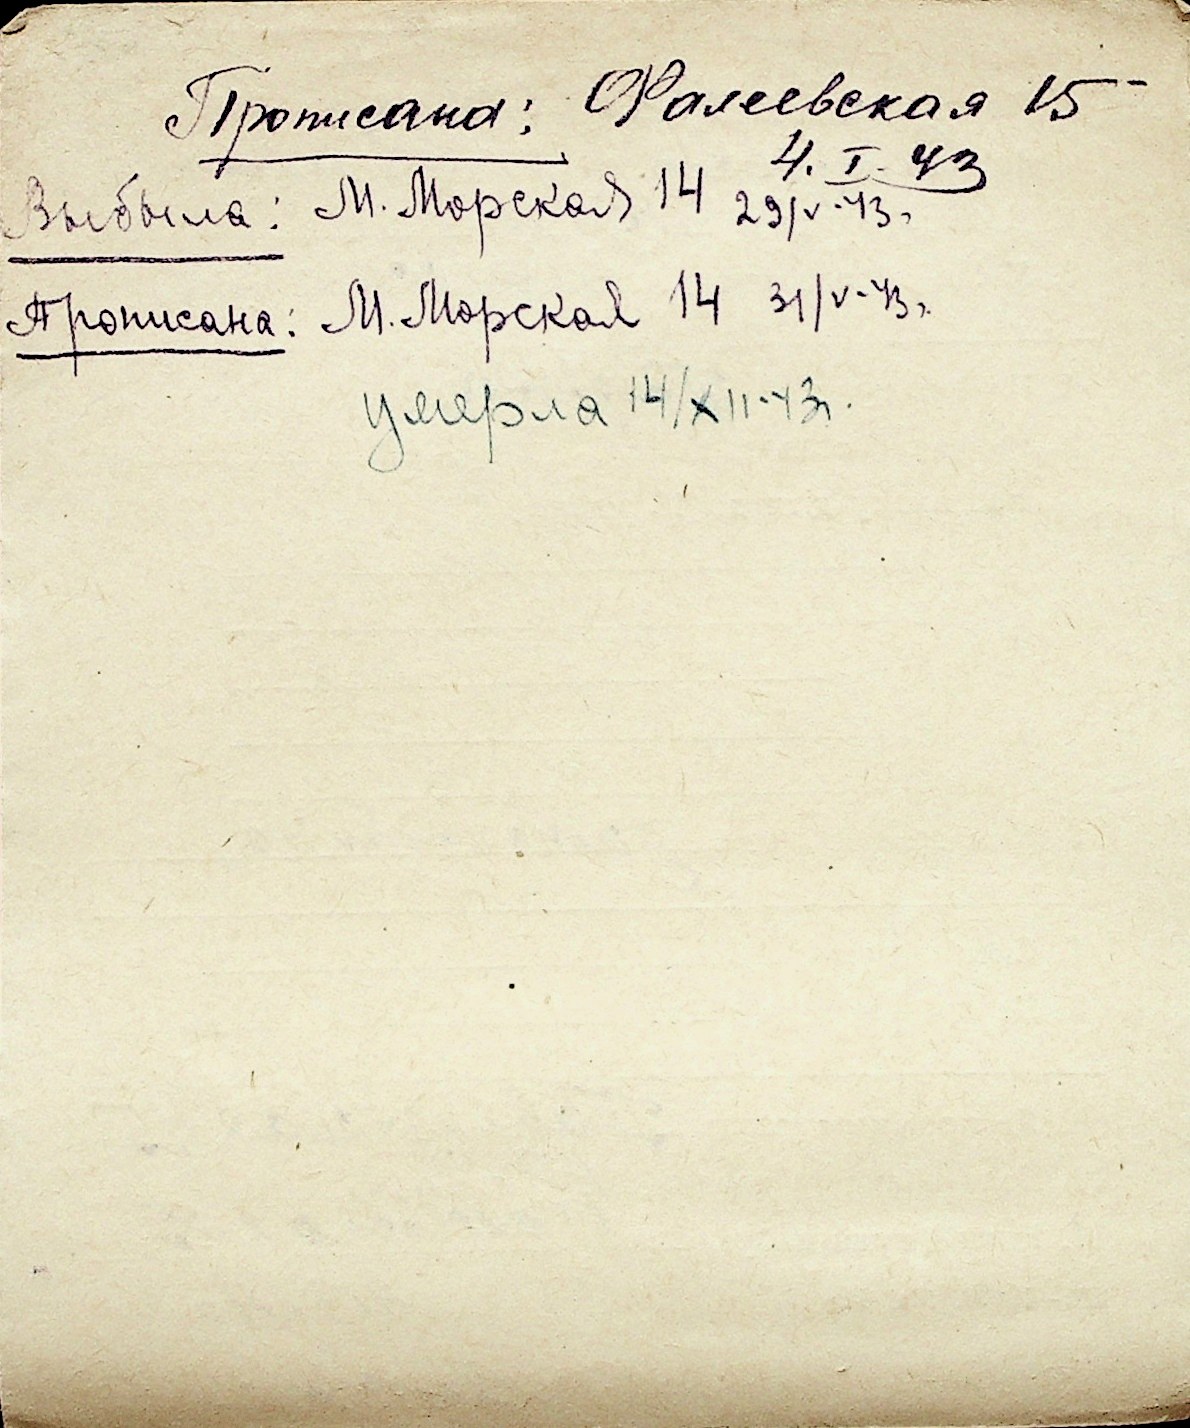 Прописана: Фалеевская 15
4. I. 43
Выбыла: М. Морская 14 29/V-43г.
Прописана: М. Морская 14 31/V-43г.
умерла 14/XII-43г.